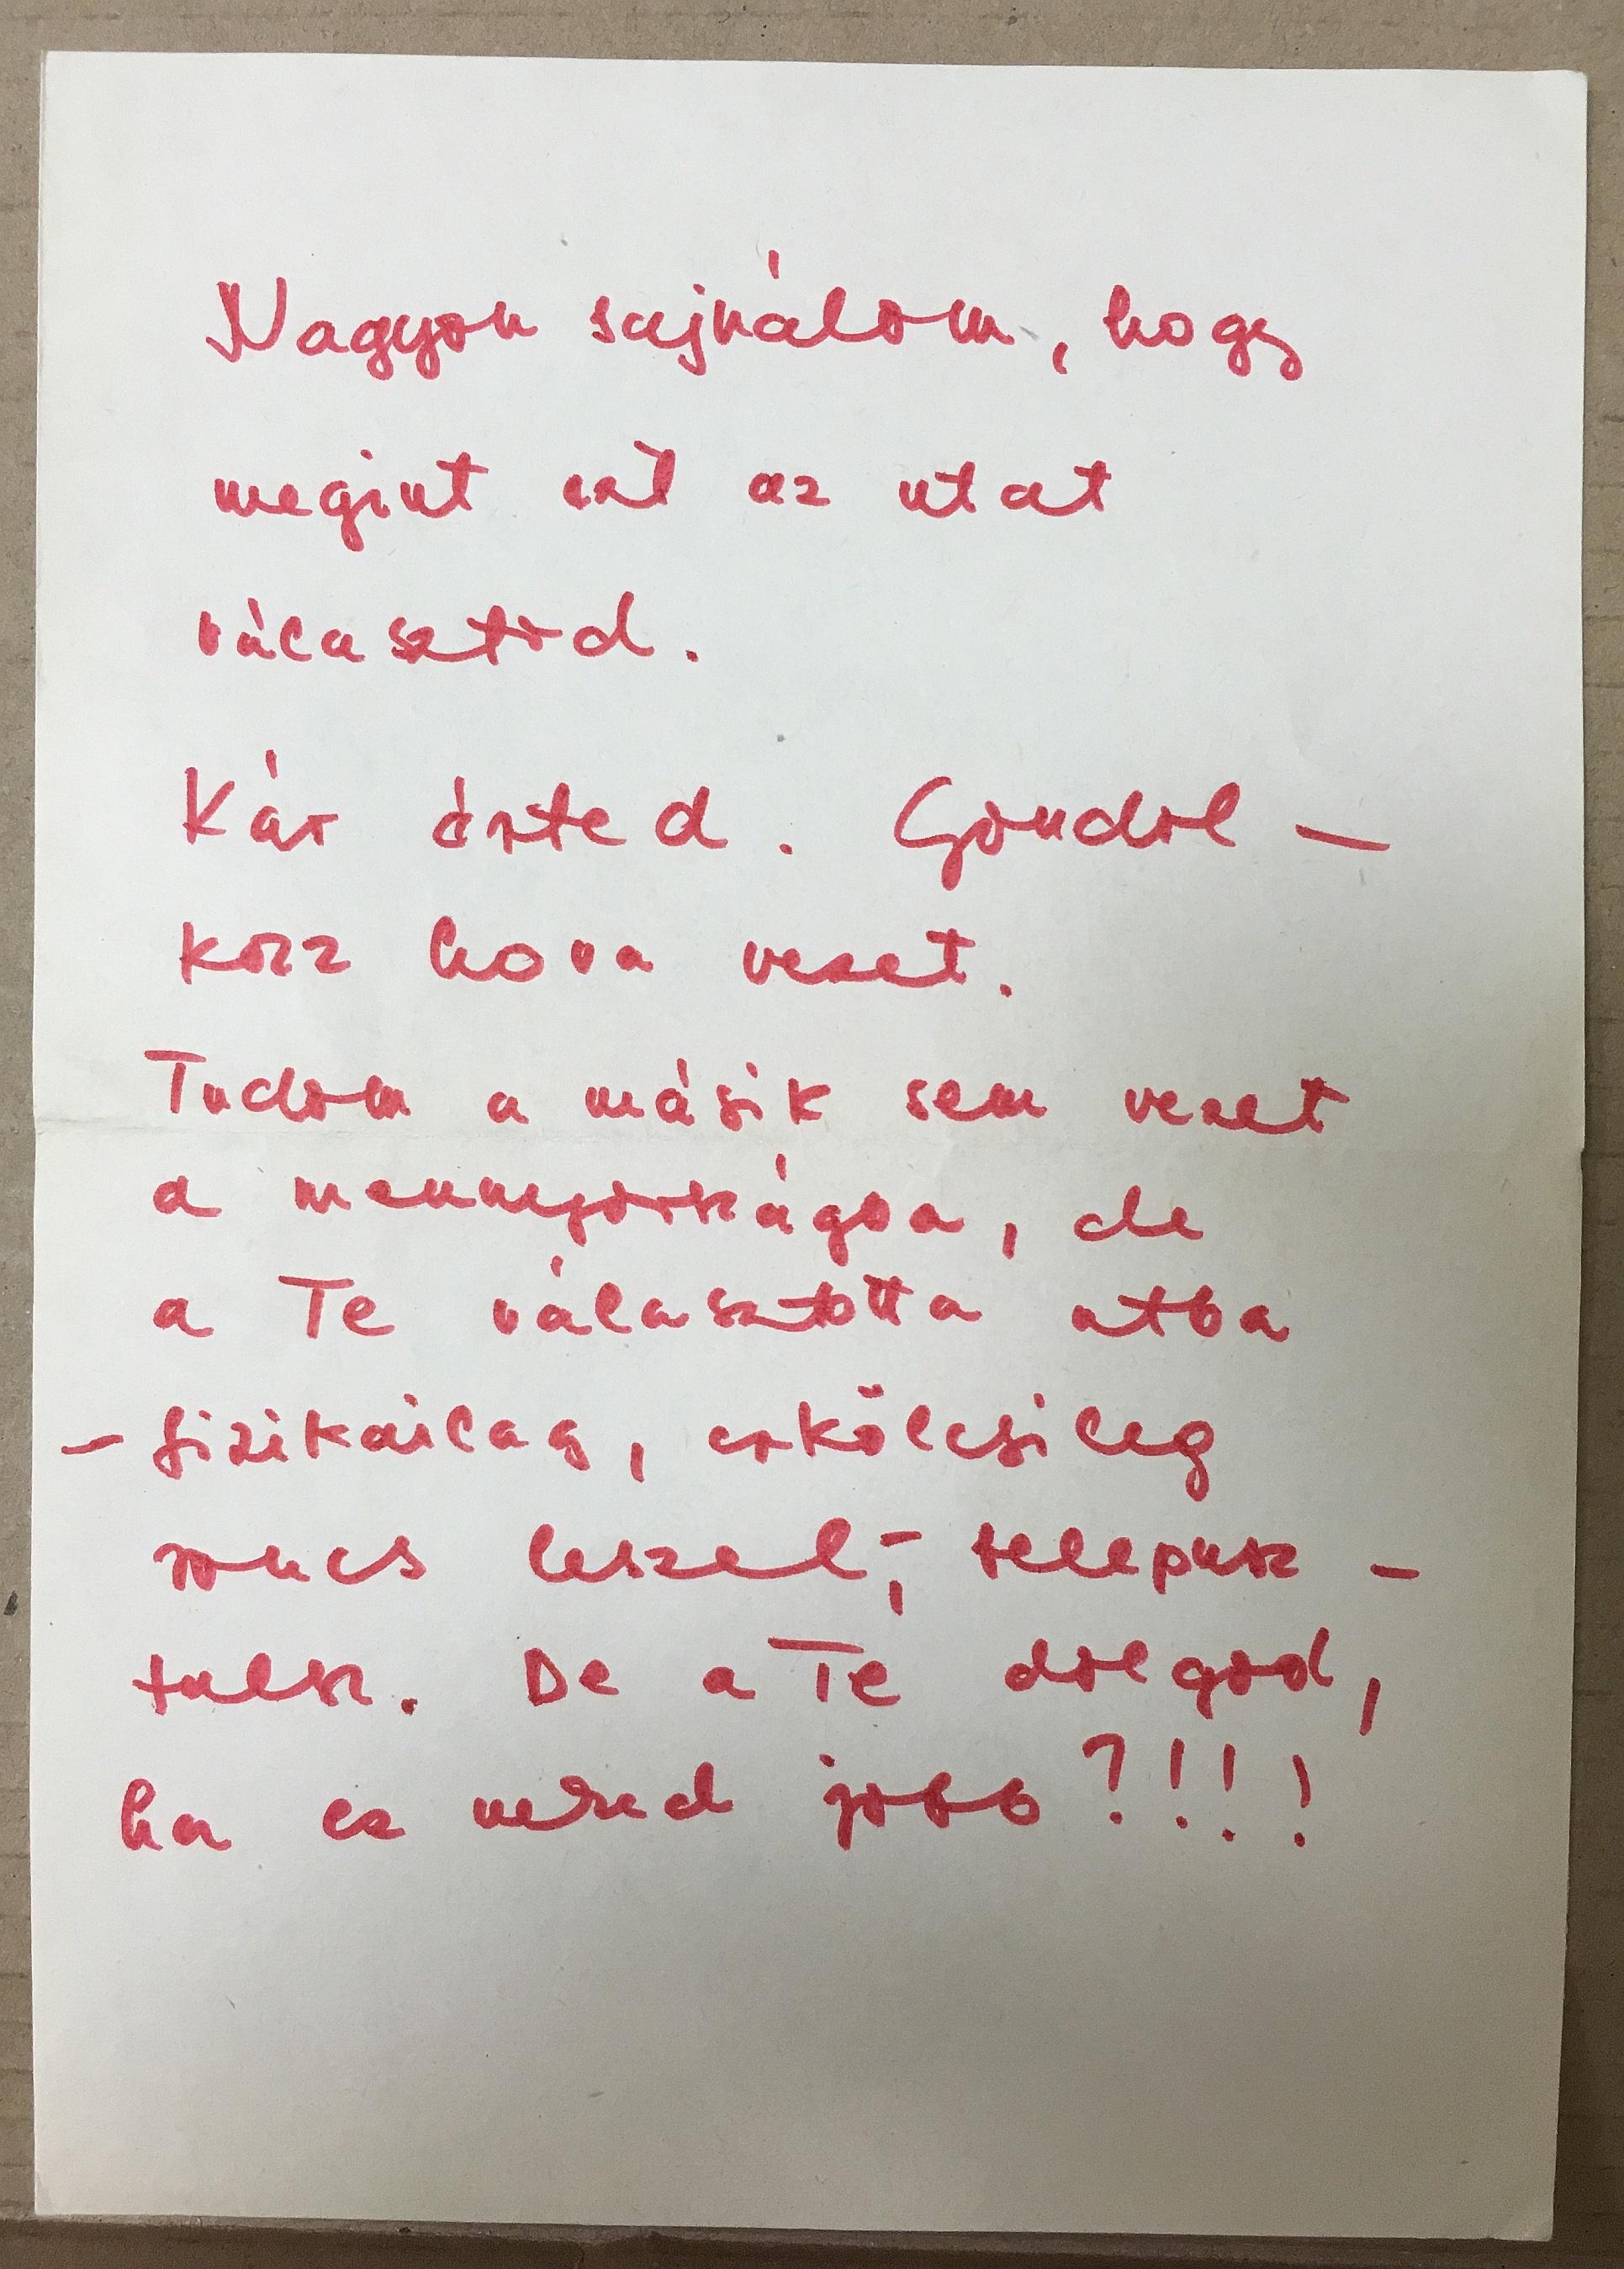 Nagyon sajnálom, hogy
megint ezt az utat
választod.
Kár érted. Gondol-
kozz hova vezet.
Tudom a másik sem vezet
a mennyországba, de
a Te választotta utba
- fizikailag, erkölcsileg
roncs leszel, - telepusz-
tulsz. De a Te dolgod,
ha ez neked jobb?!!!